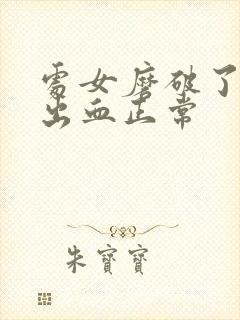 處女磨破了
出血正常
朱寶寶